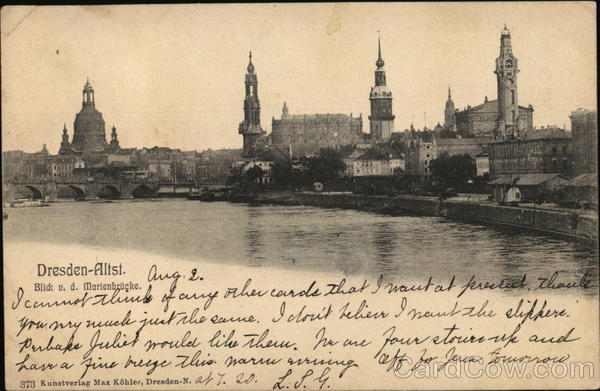 Dresden-Altst.
Blick v. d. Marienbrücke.
Aug. 2.
I cannot think of any other cards that I want at present, thank
you very much just the same. I don't believe I want the slippers.
Perhaps Juliet would like them. We are four stories up and
have a fine breeze this warm evening. Off for Jena tomorrow
at 7.20. L.S.G.
373 Kunstverlag Max Köhler, Dresden-N.
CardCow.com